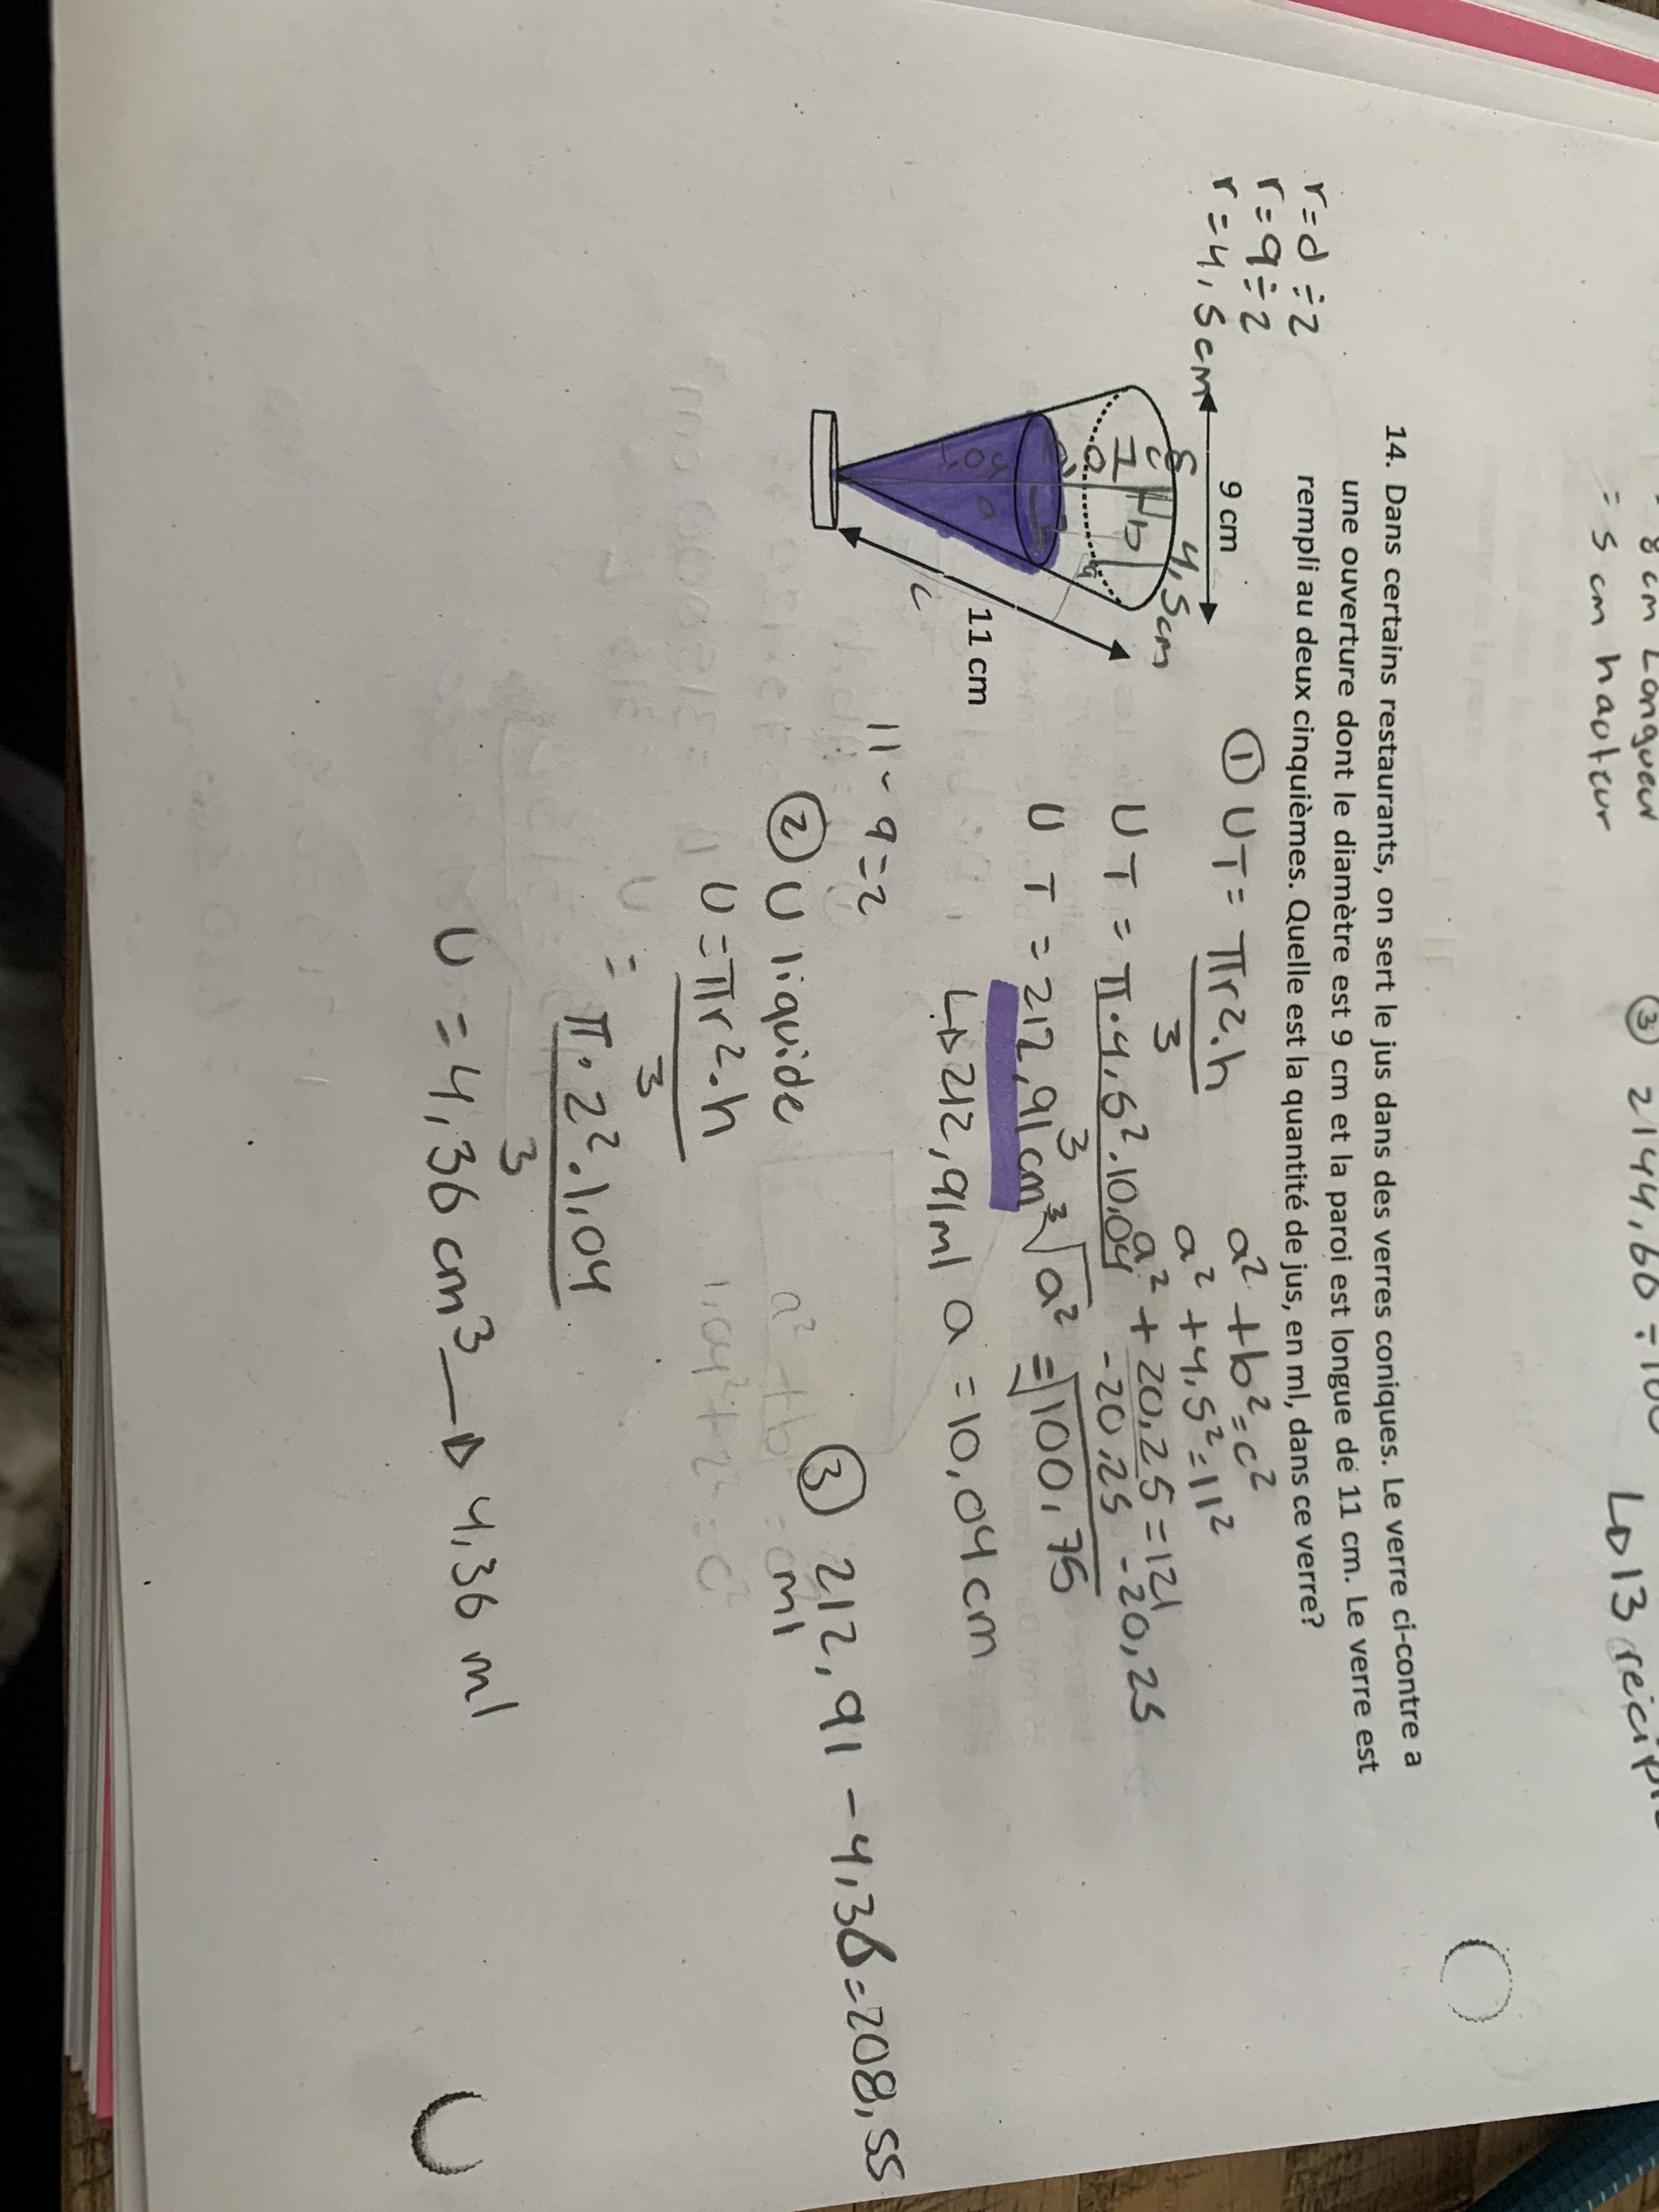 8 cm Longueur
= 5 cm hauteur
③ 2144,66 ÷ 100
↳ 13
14. Dans certains restaurants, on sert le jus dans des verres coniques. Le verre ci-contre a
une ouverture dont le diamètre est 9 cm et la paroi est longue de 11 cm. Le verre est
rempli au deux cinquièmes. Quelle est la quantité de jus, en ml, dans ce verre?
r=d÷2
r=9÷2
r=4,5cm
9 cm
4,5cm
b
a
c
11 cm
① VT= πr².h
3
VT = π.4,5².10,04
3
VT = 212,91cm³
↳ 212,91ml
a²+b²=c²
a²+4,5²=11²
a²+20,25=121
-20,25 -20,25
√a² = √100,75
a = 10,04cm
11-9=2
② V liquide
V=πr².h
3
= π.2².1,04
3
V = 4,36 cm³ → 4,36 ml
③ 212,91 - 4,36=208,55
ml